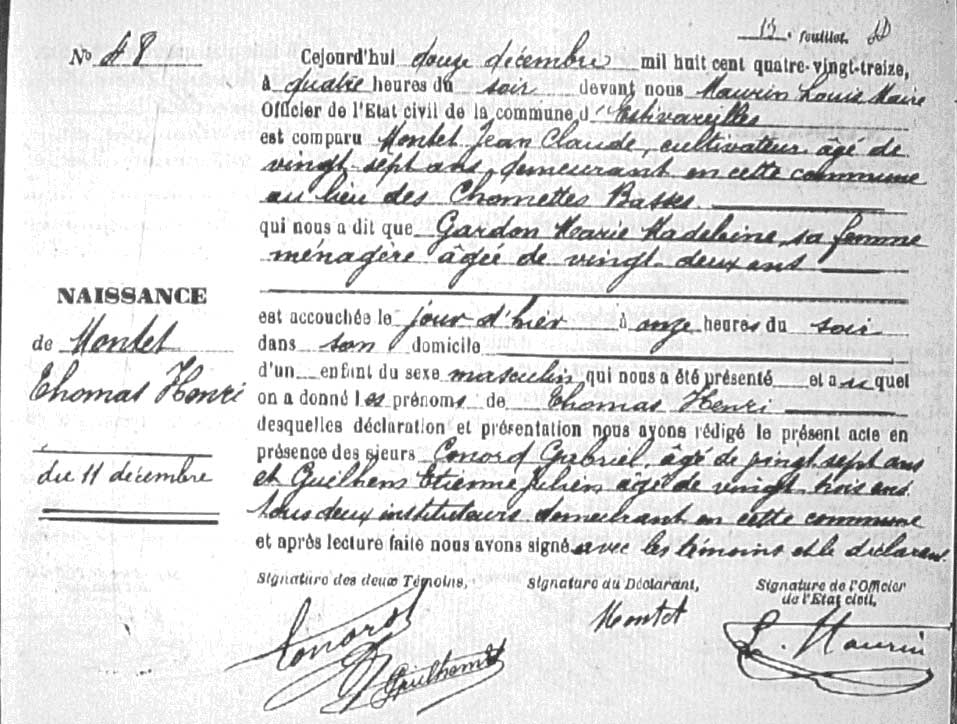 No 48
Cejourd'hui douze décembre mil huit cent quatre-vingt-treize,
à quatre heures du soir devant nous Maurin Louis Maire
Officier de l'Etat civil de la commune d'Estivareilles
est comparu Montet Jean Claude, cultivateur âgé de
vingt-sept ans, demeurant en cette commune
au lieu des Chomettes Basses
qui nous a dit que Gardon Marie Madeleine, sa femme
ménagère âgée de vingt-deux ans
NAISSANCE
de Montet
Thomas Henri
du 11 décembre
est accouchée le jour d'hier à onze heures du soir
dans son domicile
d'un enfant du sexe masculin qui nous a été présenté et auquel
on a donné les prénoms de Thomas Henri
desquelles déclaration et présentation nous avons rédigé le présent acte en
présence des sieurs Conord Gabriel, âgé de vingt sept ans
et Guilhem Etienne Julien âgé de vingt-trois ans
tous deux instituteurs demeurant en cette commune
et après lecture faite nous avons signé avec les témoins et le déclarant.
Signature des deux Témoins, Signature du Déclarant, Signature de l'Officier
de l'Etat civil,
Conord Montet L. Maurin
Guilhem